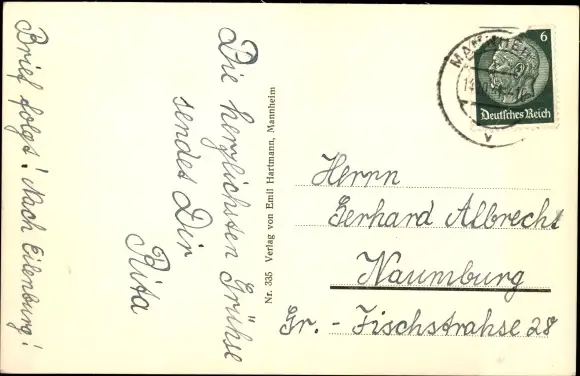 Brief folgt! Nach Eilenburg!
Die herzlichsten Grühse
sendet Dir
Rita
Nr. 335 Verlag von Emil Hartmann, Mannheim
6
Deutsches Reich
Herrn
Gerhard Albrecht
Naumburg
Gr. - Fischstrahse 28